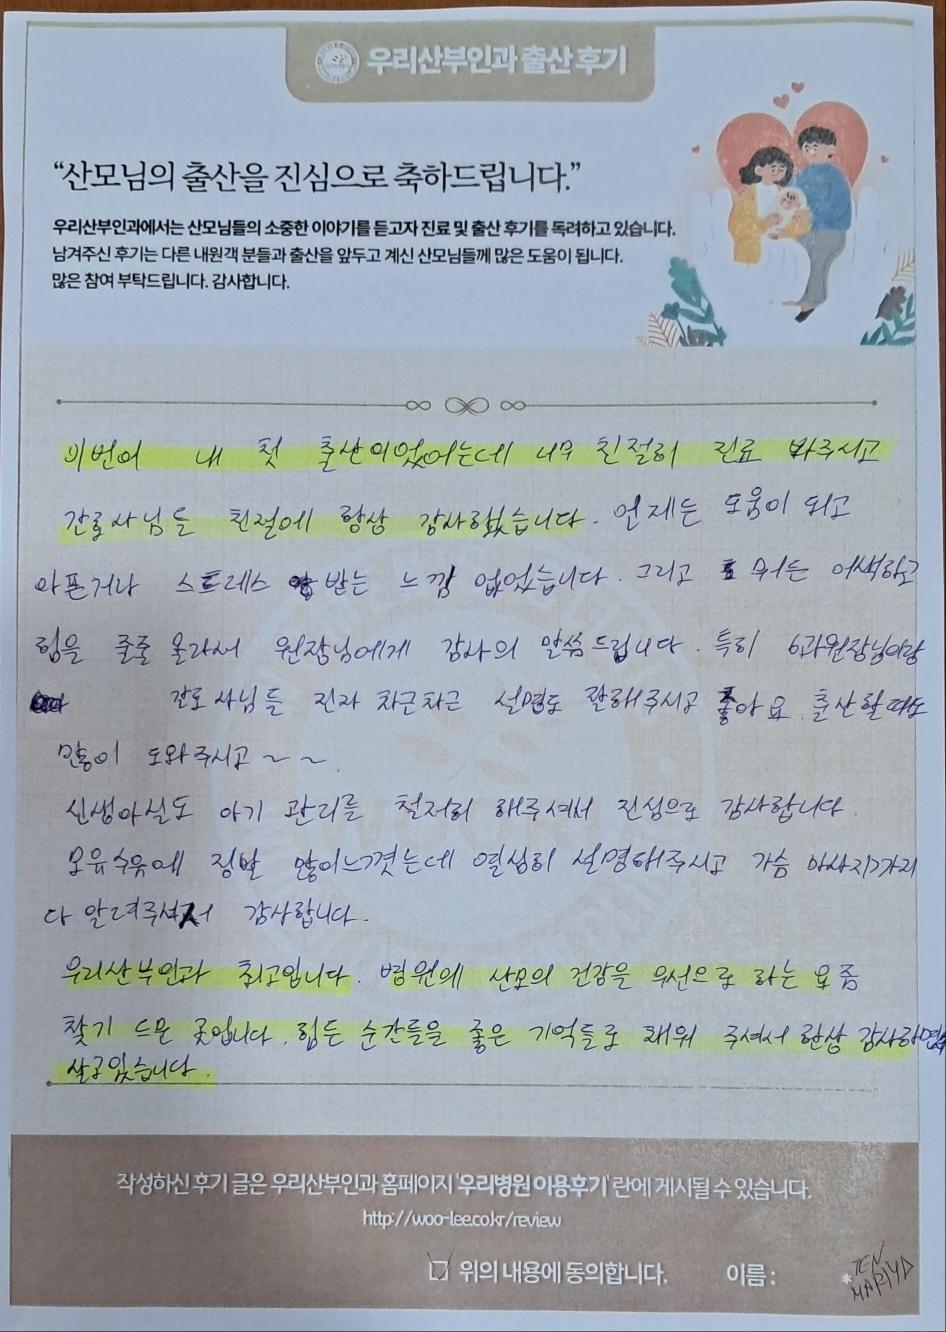 우리산부인과 출산 후기
“산모님의 출산을 진심으로 축하드립니다.”
우리산부인과에서는 산모님들의 소중한 이야기를 듣고자 진료 및 출산 후기를 독려하고 있습니다.
남겨주신 후기는 다른 내원객 분들과 출산을 앞두고 계신 산모님들께 많은 도움이 됩니다.
많은 참여 부탁드립니다. 감사합니다.
이번에 내 첫 출산이었어는데 너무 친절히 진료 봐주시고
간호사님들 친절에 항상 감사했습니다. 언제든 도움이 되고
아픈거나 스트레스 받는 느낌 없었습니다. 그리고 어색하고
힘을 줄줄 몰라서 원장님에게 감사의 말씀드립니다. 특히 6과원장님이랑
간호사님들 진짜 차근차근 설명도 잘해주시고 좋아요. 출산할때도
많이 도와주시고~~
신생아실도 아기 관리를 철저히 해주셔서 진심으로 감사합니다.
모유수유에 정말 많이느꼈는데 열심히 설명해주시고 가슴 마사지까지
다 알려주셔서 감사합니다.
우리산부인과 최고입니다. 병원의 산모의 건강을 우선으로 하는 요즘
찾기 드문 곳입니다. 힘든 순간들을 좋은 기억들로 채워 주셔서 항상 감사하면서
살고있습니다.
작성하신 후기 글은 우리산부인과 홈페이지 '우리병원 이용후기' 란에 게시될 수 있습니다.
http://woo-lee.co.kr/review
위의 내용에 동의합니다. 이름 : * TEN